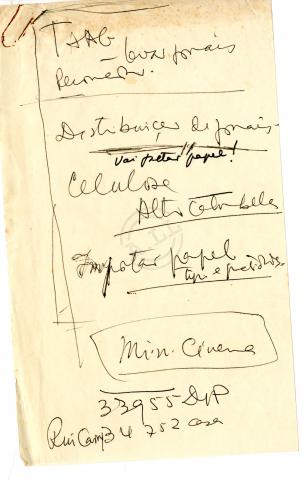 TAAG
– levar jornais
Distribuiçao de jornais
vai faltar papel!
Celulose
Alto Catumbela
Importar papel
Min. Cinema
33955 DIP
Rui Camp 34 752 casa